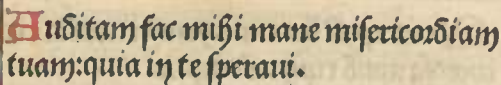 Auditam fac mihi mane misericordiam
tuam:quia in te speraui.